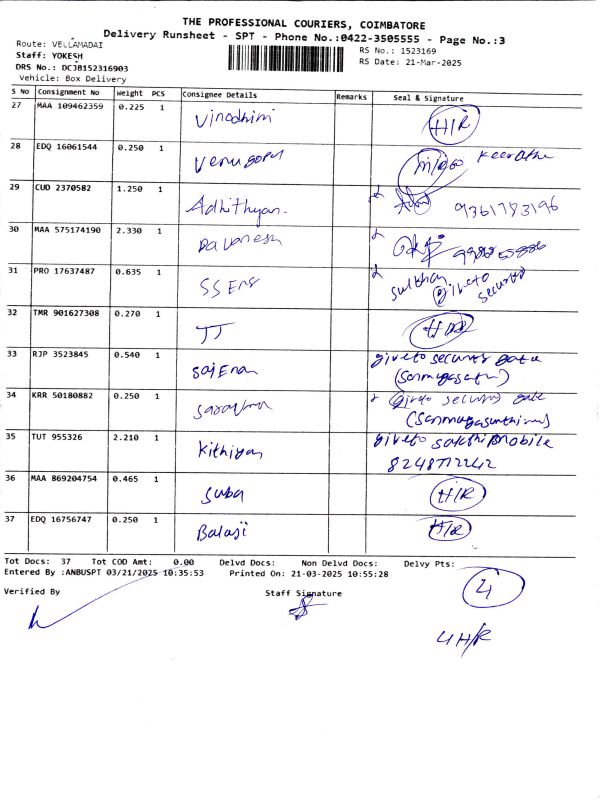 THE PROFESSIONAL COURIERS, COIMBATORE
Delivery Runsheet - SPT - Phone No.:0422-3505555 - Page No.:3
Route: VELLAMADAI
Staff: YOKESH
DRS No.: DCJB152316903
Vehicle: Box Delivery
RS No.: 1523169
RS Date: 21-Mar-2025
S No Consignment No Weight PCS Consignee Details Remarks Seal & Signature
27 MAA 109462359 0.225 1 Vinodhini H/R
28 EDQ 16061544 0.250 1 Venugopal
29 CUD 2370582 1.250 1 Adhithyan. 9361783196
30 MAA 575174190 2.330 1
31 PRO 17637487 0.635 1 SS Eng
32 TMR 901627308 0.270 1
33 RJP 3523845 0.540 1 giveto
34 KRR 50180882 0.250 1 giveto
35 TUT 955326 2.210 1 Kithiyan giveto sakthi mobile
8248772242
36 MAA 869204754 0.465 1 Suba H/R
37 EDQ 16756747 0.250 1 Balaji H/R
Tot Docs: 37 Tot COD Amt: 0.00 Delvd Docs: Non Delvd Docs: Delvy Pts:
Entered By :ANBUSPT 03/21/2025 10:35:53 Printed On: 21-03-2025 10:55:28
4
Verified By Staff Signature
4 H/R